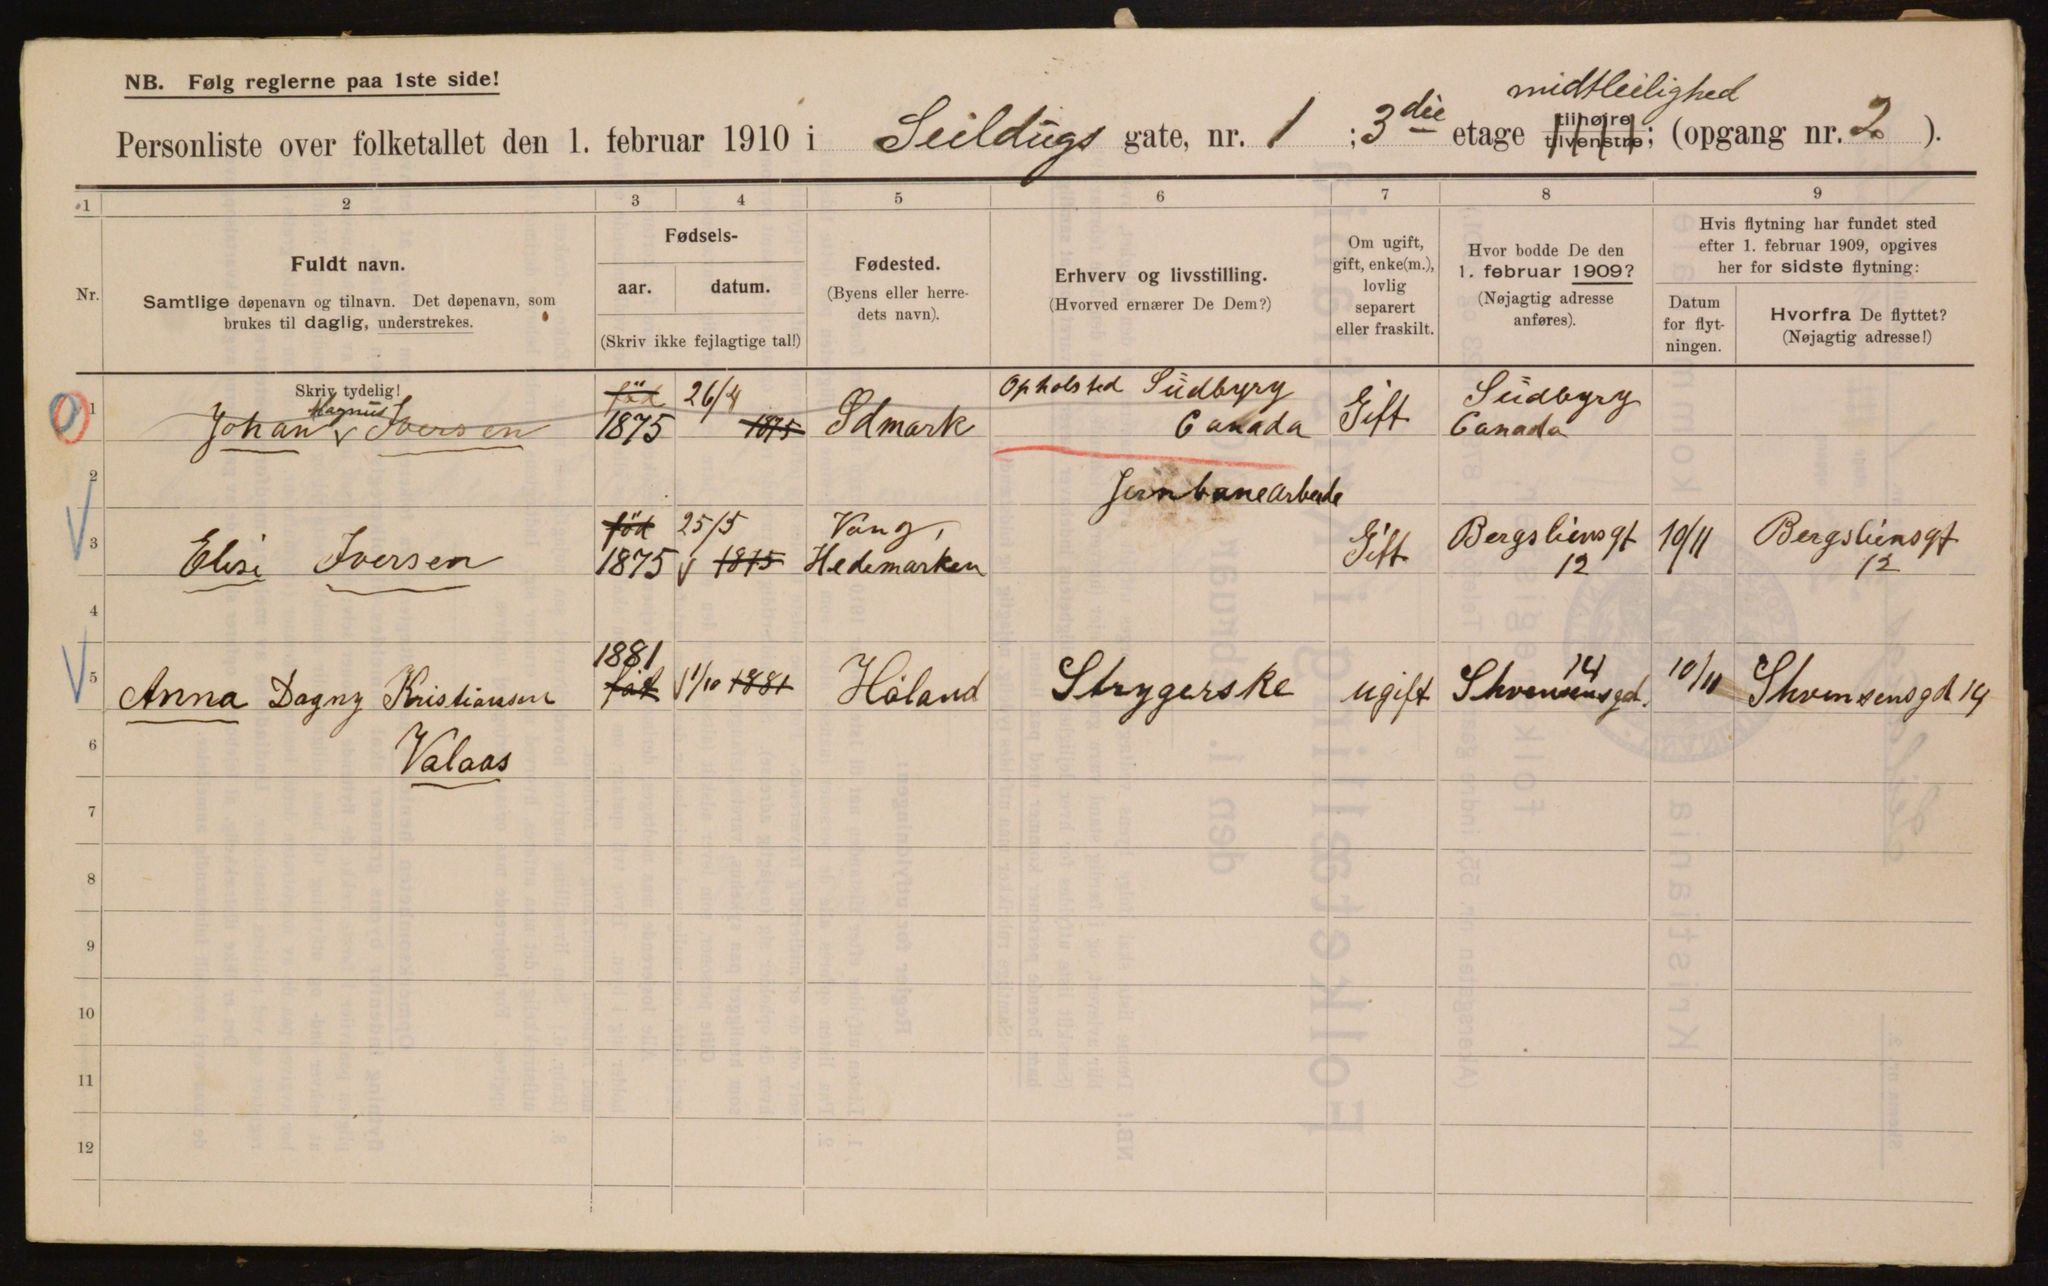 NB. Følg reglerne paa 1ste side!
midtleilighed
Personliste over folketallet den 1. februar 1910 i Seildugs gate, nr. 1 ; 3die etage tilhøjre tilvenstre; (opgang nr. 2 ).
1 2 3 4 5 6 7 8 9
Nr.
Fuldt navn.
Samtlige døpenavn og tilnavn. Det døpenavn, som
brukes til daglig, understrekes.
Fødsels-
aar. datum.
(Skriv ikke fejlagtige tal!)
Fødested.
(Byens eller herre-
dets navn).
Erhverv og livsstilling.
(Hvorved ernærer De Dem?)
Om ugift,
gift, enke(m.),
lovlig
separert
eller fraskilt.
Hvor bodde De den
1. februar 1909?
(Nøjagtig adresse
anføres).
Hvis flytning har fundet sted
efter 1. februar 1909, opgives
her for sidste flytning:
Datum
for flyt-
ningen.
Hvorfra De flyttet?
(Nøjagtig adresse!)
Skriv tydelig!
Magnus
föd 26/4 Opholsted Südbyry Südbyry
1 Johan Iversen 1875 1875 Ødmark Canada Gift Canada
2 Jernbanearbeide
föd 25/5 Vang,
3 Elisi Iversen 1875 1875 Hedemarken Gift Bergsliensgt 12 10/11 Bergsliensgt 12
4
1881
5 Anna Dagny Kristiansen föt 11/10 1881 Høland Strygerske ugift 14 10/11
6 Valaas
7
8
9
10
11
12